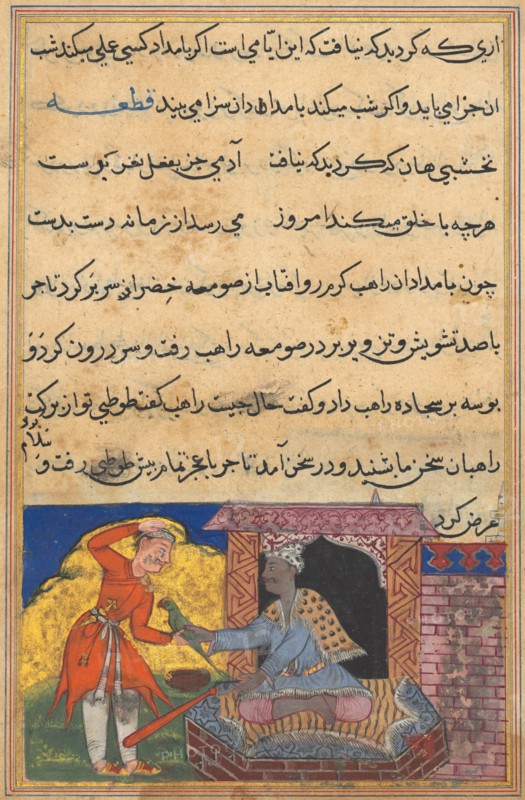 آری که کردید که نیافت که این ایامی است اکر بامداد کسی عملی میکند شب
ان جزا می یابد و اکر شب میکند بامدادان سزا می بیند قطعه
نخشبی هان که کردید که نیافت آدمی جز بفعل نغز
هرچه با خلق میکند امروز می رسد از زمانه دست بدست
چون بامدادان راهب کرم رو افتاب از صومعه خضرا سر بر کرد تاجر
باصد تشویش و تزویر بر در صومعه راهب رفت و سر درون کرد و
بوسه بر سجاده راهب داد و کفت حال چیست راهب کفت طوطی تو از برکت
راهبان سخن ما شنید و در سخن آمد تاجر با عجز تمام پیش طوطی رفت و
برو سلام
عرض کرد